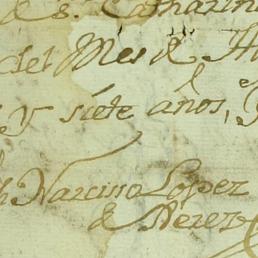 de S.ᵗ Catharin
del Mes de
y siete años,
Narciso Lopez
de Nerez